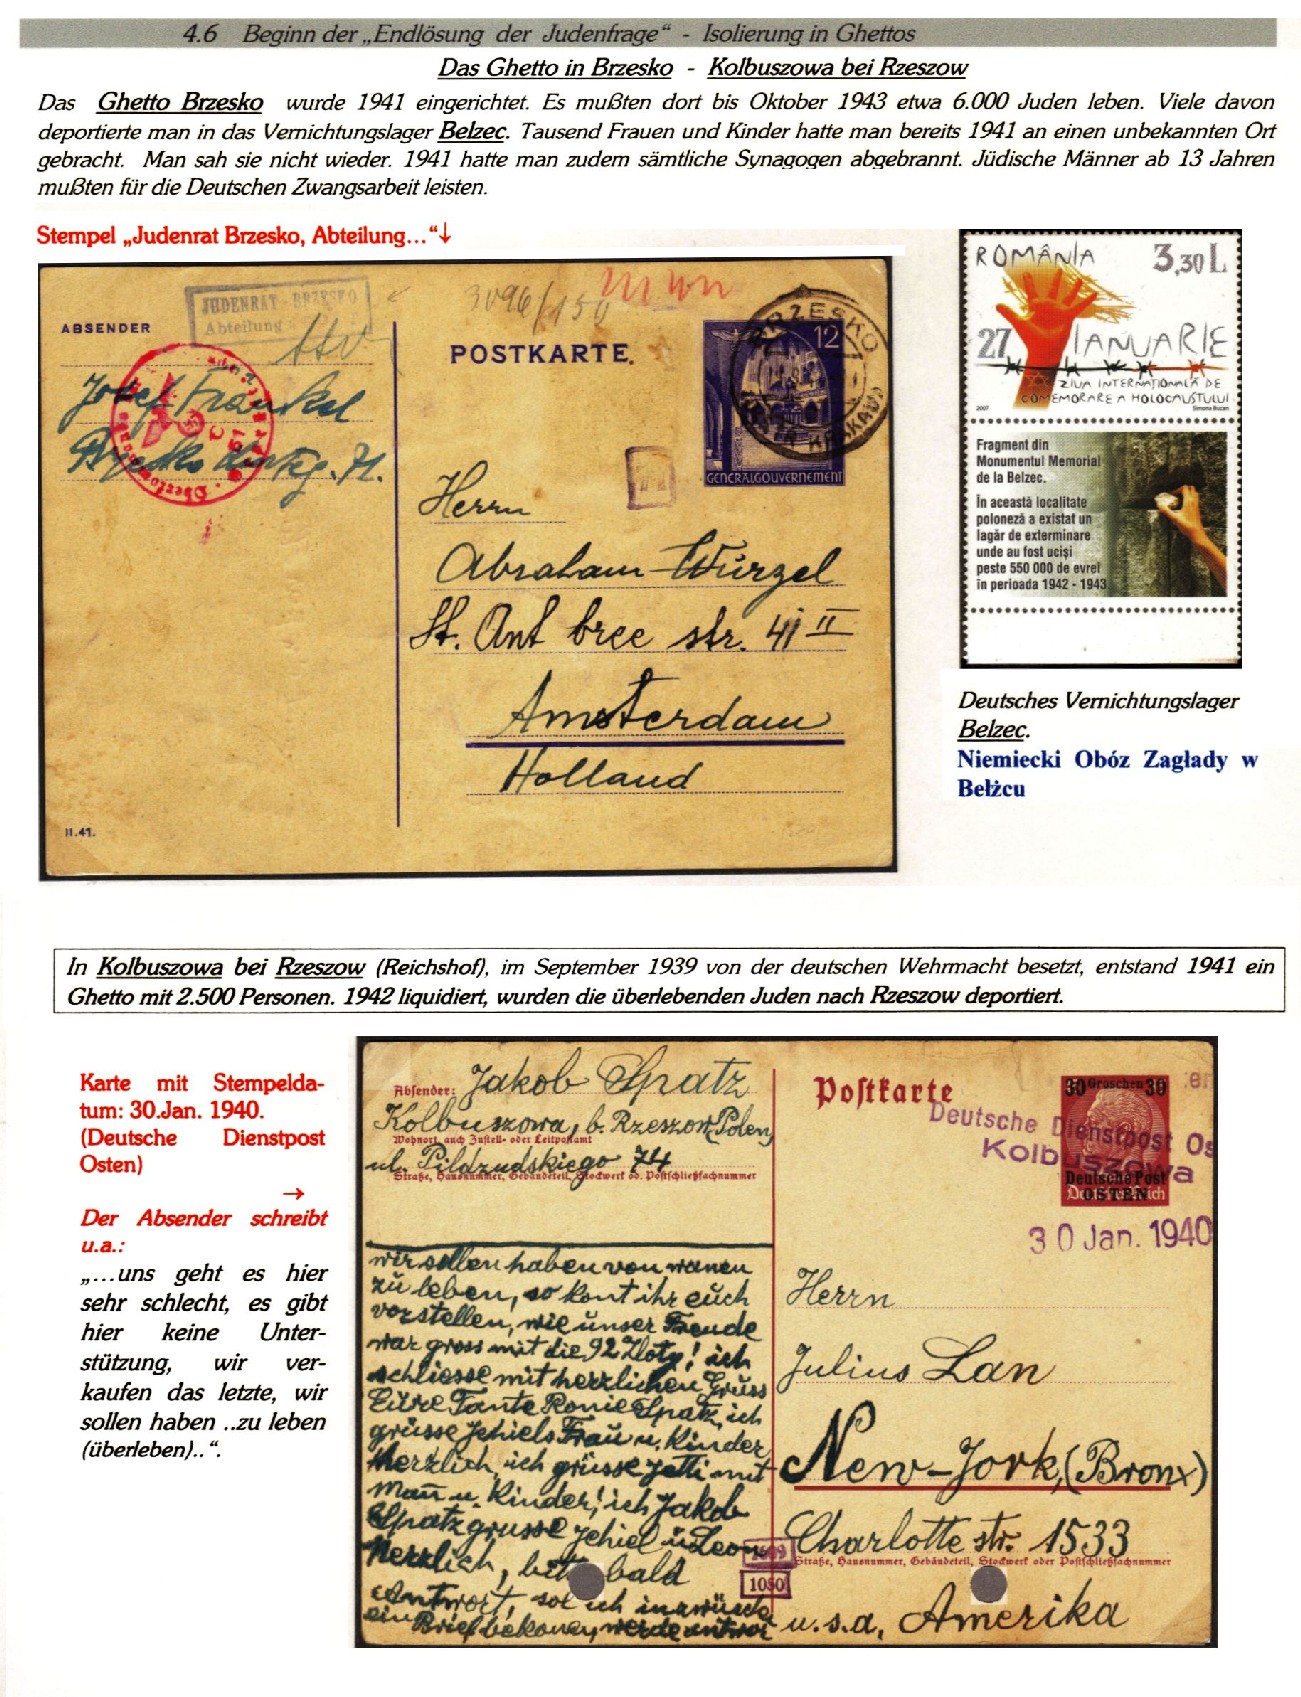 4.6 Beginn der „Endlösung der Judenfrage“ - Isolierung in Ghettos
Das Ghetto in Brzesko - Kolbuszowa bei Rzeszow
Das Ghetto Brzesko wurde 1941 eingerichtet. Es mußten dort bis Oktober 1943 etwa 6.000 Juden leben. Viele davon
deportierte man in das Vernichtungslager Belzec. Tausend Frauen und Kinder hatte man bereits 1941 an einen unbekannten Ort
gebracht. Man sah sie nicht wieder. 1941 hatte man zudem sämtliche Synagogen abgebrannt. Jüdische Männer ab 13 Jahren
mußten für die Deutschen Zwangsarbeit leisten.
Stempel „Judenrat Brzesko, Abteilung...“↓
JUDENRAT - BRZESKO
Abteilung
3096/150
ABSENDER
Josef Frankel
Brzesko
POSTKARTE.
BRZESKO
12
GENERALGOUVERNEMENT
Herrn
Abraham Würzel
St. Ant bree str. 41 II
Amsterdam
Holland
II.41.
ROMÂNIA 3,30 L
27 IANUARIE
ZIUA INTERNAȚIONALĂ DE
COMEMORARE A HOLOCAUSTULUI
2007 Simona Bucan
Fragment din
Monumentul Memorial
de la Belzec.
În această localitate
poloneză a existat un
lagăr de exterminare
unde au fost uciși
peste 550 000 de evrei
în perioada 1942 - 1943
Deutsches Vernichtungslager
Belzec.
Niemiecki Obóz Zagłady w
Bełżcu
In Kolbuszowa bei Rzeszow (Reichshof), im September 1939 von der deutschen Wehrmacht besetzt, entstand 1941 ein
Ghetto mit 2.500 Personen. 1942 liquidiert, wurden die überlebenden Juden nach Rzeszow deportiert.
Karte mit Stempelda-
tum: 30.Jan. 1940.
(Deutsche Dienstpost
Osten)
→
Der Absender schreibt
u.a.:
„...uns geht es hier
sehr schlecht, es gibt
hier keine Unter-
stützung, wir ver-
kaufen das letzte, wir
sollen haben ..zu leben
(überleben)..“.
Absender: Jakob Spatz
Kolbuszowa, b. Rzeszow, Polen,
Wohnort, auch Zustell- oder Leitpostamt
ul. Pildzudskiego 74
Straße, Hausnummer, Gebäudeteil, Stockwerk od. Postschließfachnummer
wir sollen haben von wanen
zu leben, so kont ihr euch
vorstellen, wie unser Freude
war gross mit die 92 Zloty! ich
schliesse mit herzlichen Gruss
Eure Tante Ronie Spatz, ich
grüsse Jehiels Frau u. Kinder
Herzlich, ich grüsse Jetti mit
Man u. Kinder! ich Jakob
Spatz grusse Jehiel u Leon
Herzlich, bald
Antwort, sol ich
ein Brief bekomen,
Postkarte
30 Groschen 30
Deutsche Post
OSTEN
Deutsches Reich
Deutsche Dienstpost Os
Kolbuszowa
30 Jan. 1940
Herrn
Julius Lan
New-York, (Bronx)
Charlotte str. 1533
Straße, Hausnummer, Gebäudeteil, Stockwerk oder Postschließfachnummer
u.s.a, Amerika
1050